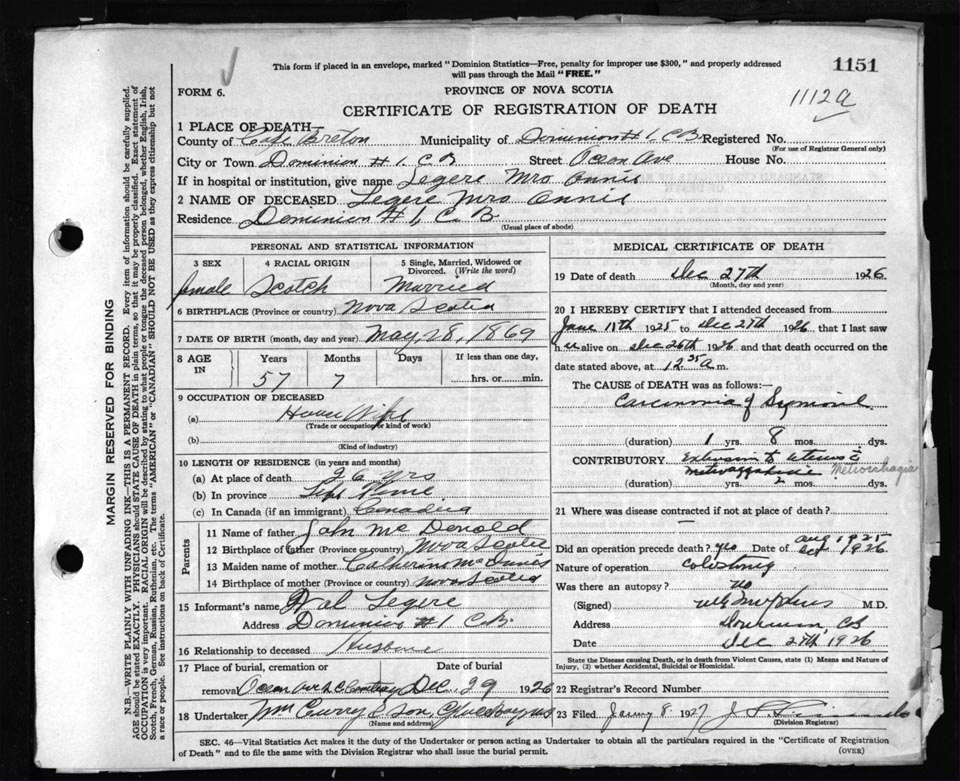 This form if placed in an envelope, marked "Dominion Statistics—Free, penalty for improper use $300," and properly addressed
will pass through the Mail "FREE."
1151
FORM 6.
PROVINCE OF NOVA SCOTIA
1112a
CERTIFICATE OF REGISTRATION OF DEATH
1 PLACE OF DEATH—
County of Cape Breton Municipality of Dominion # 1 C B Registered No.
(For use of Registrar General only)
City or Town Dominion # 1. C B Street Ocean Ave House No.
If in hospital or institution, give name Legere Mrs Annie
2 NAME OF DECEASED Legere Mrs Annie
Residence Dominion # 1, C. B
(Usual place of abode)
PERSONAL AND STATISTICAL INFORMATION
3 SEX 4 RACIAL ORIGIN 5 Single, Married, Widowed or
Divorced. (Write the word)
female Scotch Married
6 BIRTHPLACE (Province or country) Nova Scotia
7 DATE OF BIRTH (month, day and year) May, 28, 1869
8 AGE IN Years Months Days If less than one day,
57 7 hrs. or min.
9 OCCUPATION OF DECEASED
(a) House Wife
(Trade or occupation or kind of work)
(b)
(Kind of industry)
10 LENGTH OF RESIDENCE (in years and months)
(a) At place of death 26 yrs
(b) In province Life Time
(c) In Canada (if an immigrant) Canadian
Parents
11 Name of father John Mc Donold
12 Birthplace of father (Province or country) Nova Scotia
13 Maiden name of mother Catherine
14 Birthplace of mother (Province or country) Nova Scotia
15 Informant's name Legere
Address Dominion #1 C.B.
16 Relationship to deceased
17 Place of burial, cremation or Date of burial
removal Dec 29 1926
18 Undertaker Wm Curry & Son
(Name and address)
MEDICAL CERTIFICATE OF DEATH
19 Date of death Dec 27th 1926
(Month, day and year)
20 I HEREBY CERTIFY that I attended deceased from
1925 to Dec 27th 1926, that I last saw
h er alive on Dec 26th 1926 and that death occurred on
date stated above, at 12 35 a m.
The CAUSE of DEATH was as follows:—
Carcinoma of
(duration) 1 yrs. 8 mos. dys.
CONTRIBUTORY Extension to uterus
Metrorrhagia
(duration) yrs. 2 mos. dys.
21 Where was disease contracted if not at place of death?
Did an operation precede death? yes Date of Aug 1925
1926
Nature of operation
Was there an autopsy? no
(Signed) M.D.
Address Dominion CB
Date Dec 27th 1926
State the Disease causing Death, or in death from Violent Causes, state (1) Means and Nature of
Injury, (2) whether Accidental, Suicidal or Homicidal.
22 Registrar's Record Number
23 Filed 8 1927
(Division Registrar)
SEC. 46—Vital Statistics Act makes it the duty of the Undertaker or person acting as Undertaker to obtain all the particulars required in the "Certificate of Registration
of Death" and to file the same with the Division Registrar who shall issue the burial permit.
(OVER)
MARGIN RESERVED FOR BINDING
N.B.—WRITE PLAINLY WITH UNFADING INK—THIS IS A PERMANENT RECORD. Every item of information should be carefully supplied.
AGE should be stated EXACTLY. PHYSICIANS should STATE CAUSE OF DEATH in plain terms, so that it may be properly classified. Exact statement of
OCCUPATION is very important. RACIAL ORIGIN will be described by stating to what people or tongue the deceased person belonged, whether English, Irish,
Scotch, French, German, Russian, Ruthenian, etc. The terms "AMERICAN" or "CANADIAN" SHOULD NOT BE USED as they express citizenship but not
a race or people. See instructions on back of Certificate.